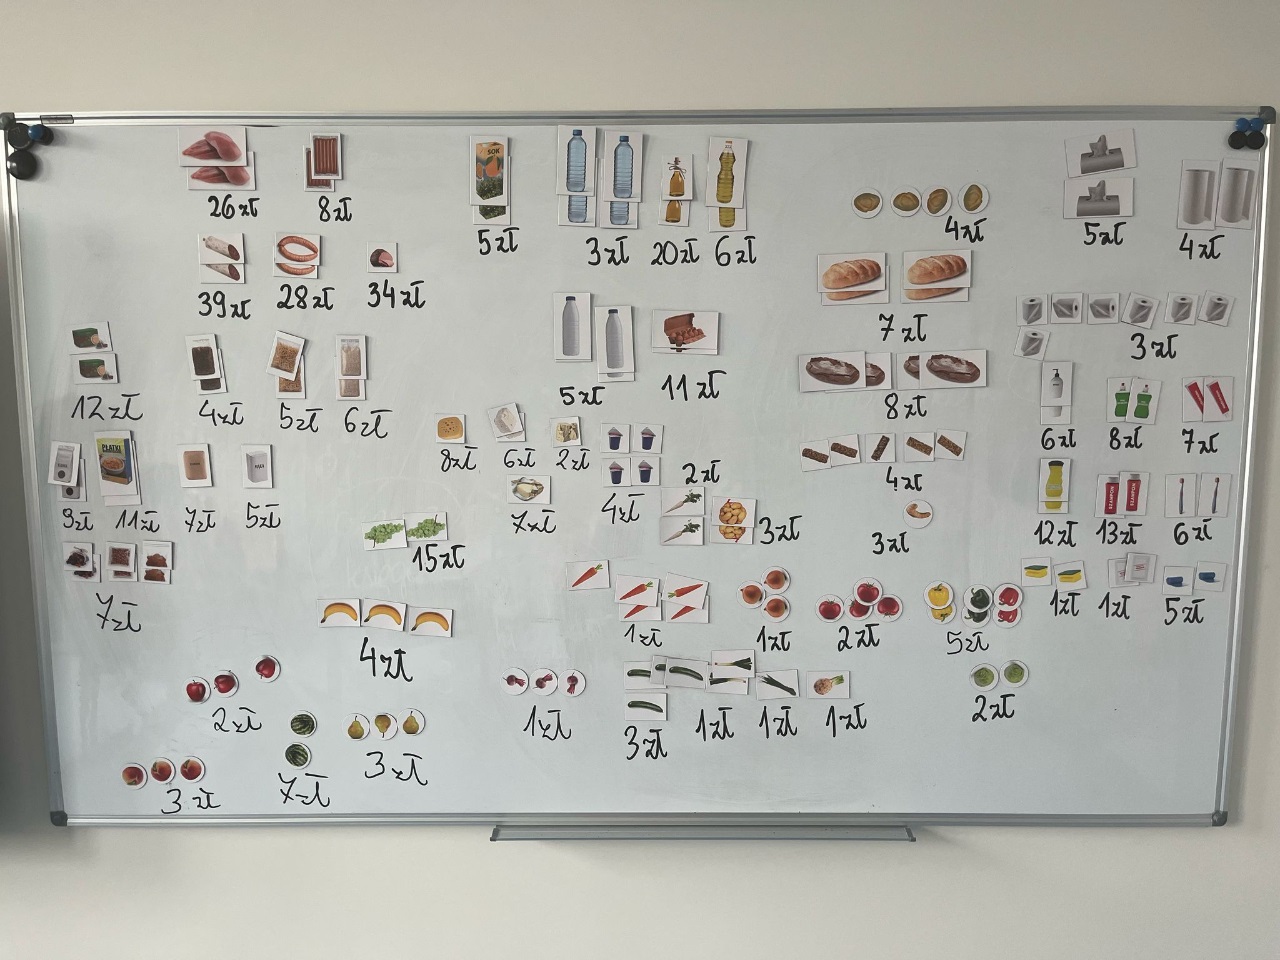 SOK
26 zł
8 zł
5 zł
3 zł
20 zł
6 zł
4 zł
5 zł
4 zł
39 zł
28 zł
34 zł
7 zł
3 zł
12 zł
4 zł
5 zł
6 zł
5 zł
11 zł
8 zł
6 zł
8 zł
7 zł
PŁATKI
8 zł
6 zł
2 zł
2 zł
4 zł
9 zł
11 zł
7 zł
5 zł
7 zł
4 zł
3 zł
3 zł
SZAMPON
SZAMPON
12 zł
13 zł
6 zł
15 zł
7 zł
1 zł
1 zł
2 zł
5 zł
1 zł
1 zł
5 zł
4 zł
2 zł
1 zł
3 zł
1 zł
1 zł
1 zł
2 zł
3 zł
7 zł
3 zł